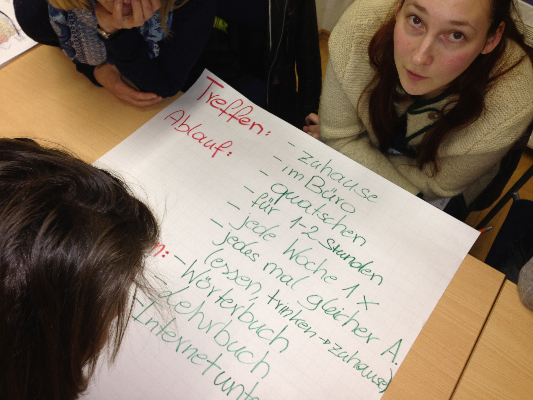 Treffen: - zuhause
Ablauf: - im Büro
- quatschen
- für 1-2 Stunden
- jede Woche 1 x
- jedes mal gleicher A.
(essen, trinken → zuhause)
- Wörterbuch
- Lehrbuch
Internet